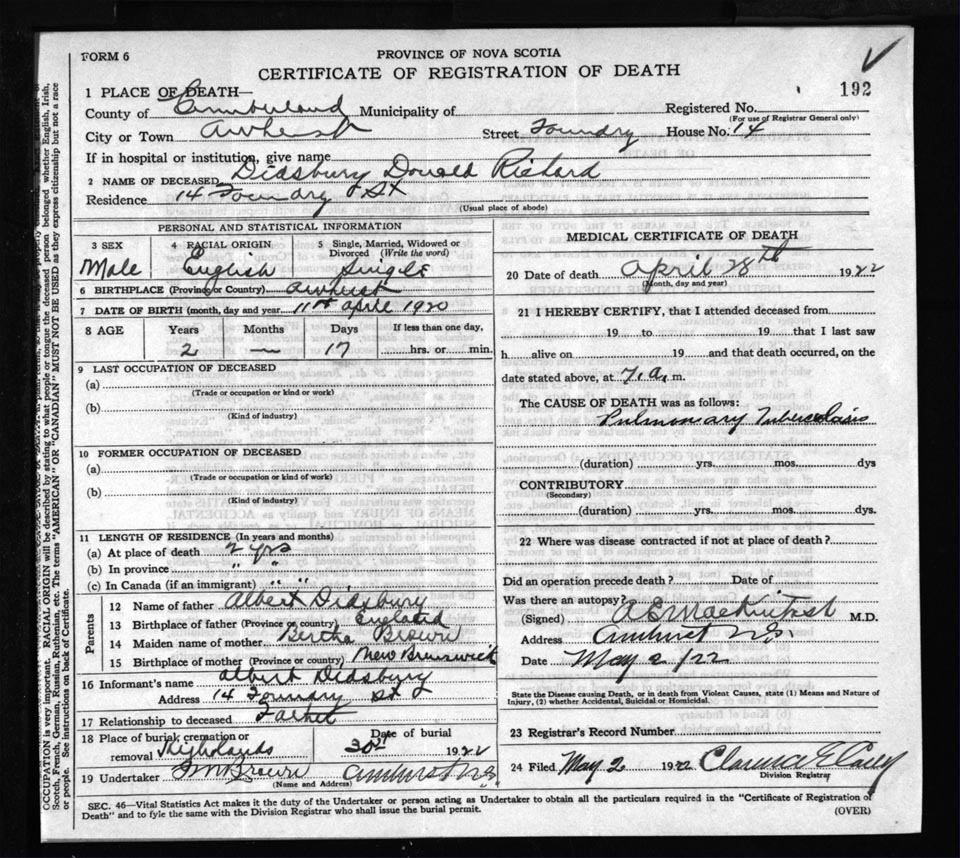 FORM 6
PROVINCE OF NOVA SCOTIA
CERTIFICATE OF REGISTRATION OF DEATH
192
1 PLACE OF DEATH—
County of Cumberland Municipality of Registered No.
(For use of Registrar General only)
City or Town Amherst Street Foundry House No. 14
If in hospital or institution, give name
2 NAME OF DECEASED Didsbury Donald Richard
Residence 14 Foundry St
(Usual place of abode)
PERSONAL AND STATISTICAL INFORMATION
3 SEX 4 RACIAL ORIGIN 5 Single, Married, Widowed or Divorced (Write the word)
Male English Single
6 BIRTHPLACE (Province or Country) Amherst
7 DATE OF BIRTH (month, day and year) 11th April 1920
8 AGE Years Months Days If less than one day,
2 — 17 hrs. or min.
9 LAST OCCUPATION OF DECEASED
(a)
(Trade or occupation or kind or work)
(b)
(Kind of industry)
10 FORMER OCCUPATION OF DECEASED
(a)
(Trade or occupation or kind or work)
(b)
(Kind of industry)
11 LENGTH OF RESIDENCE (In years and months)
(a) At place of death 2 yrs
(b) In province " "
(c) In Canada (if an immigrant) " "
Parents
12 Name of father Albert Didsbury
13 Birthplace of father (Province or country) England
14 Maiden name of mother Bertha Brown
15 Birthplace of mother (Province or country) New Brunswick
16 Informant's name Albert Didsbury
Address 14 Foundry St
17 Relationship to deceased Father
18 Place of burial, cremation or removal Highlands Date of burial 30th 1922
19 Undertaker Brown Amherst N.S.
(Name and Address)
MEDICAL CERTIFICATE OF DEATH
20 Date of death April 28th 1922
(Month, day and year)
21 I HEREBY CERTIFY, that I attended deceased from
19 to 19 that I last saw
h alive on 19 and that death occurred, on the
date stated above, at 7. a. m.
The CAUSE OF DEATH was as follows:
Pulmonary Tuberculosis
(duration) yrs. mos. dys
CONTRIBUTORY
(Secondary)
(duration) yrs. mos. dys.
22 Where was disease contracted if not at place of death?
Did an operation precede death? Date of
Was there an autopsy?
(Signed) M.D.
Address Amherst N.S.
Date May 2/22
State the Disease causing Death, or in death from Violent Causes, state (1) Means and Nature of
Injury, (2) whether Accidental, Suicidal or Homicidal.
23 Registrar's Record Number
24 Filed May 2 1922 Clarence E Casey
Division Registrar
SEC. 46—Vital Statistics Act makes it the duty of the Undertaker or person acting as Undertaker to obtain all the particulars required in the "Certificate of Registration of
Death" and to fyle the same with the Division Registrar who shall issue the burial permit.
(OVER)
OCCUPATION is very important. RACIAL ORIGIN will be described by stating to what people or tongue the deceased person belonged whether English, Irish,
Scotch, French, German, Russian, Ruthenian, etc. The terms "AMERICAN" OR "CANADIAN" MUST NOT BE USED as they express citizenship but not a race
or people. See instructions on back of Certificate.